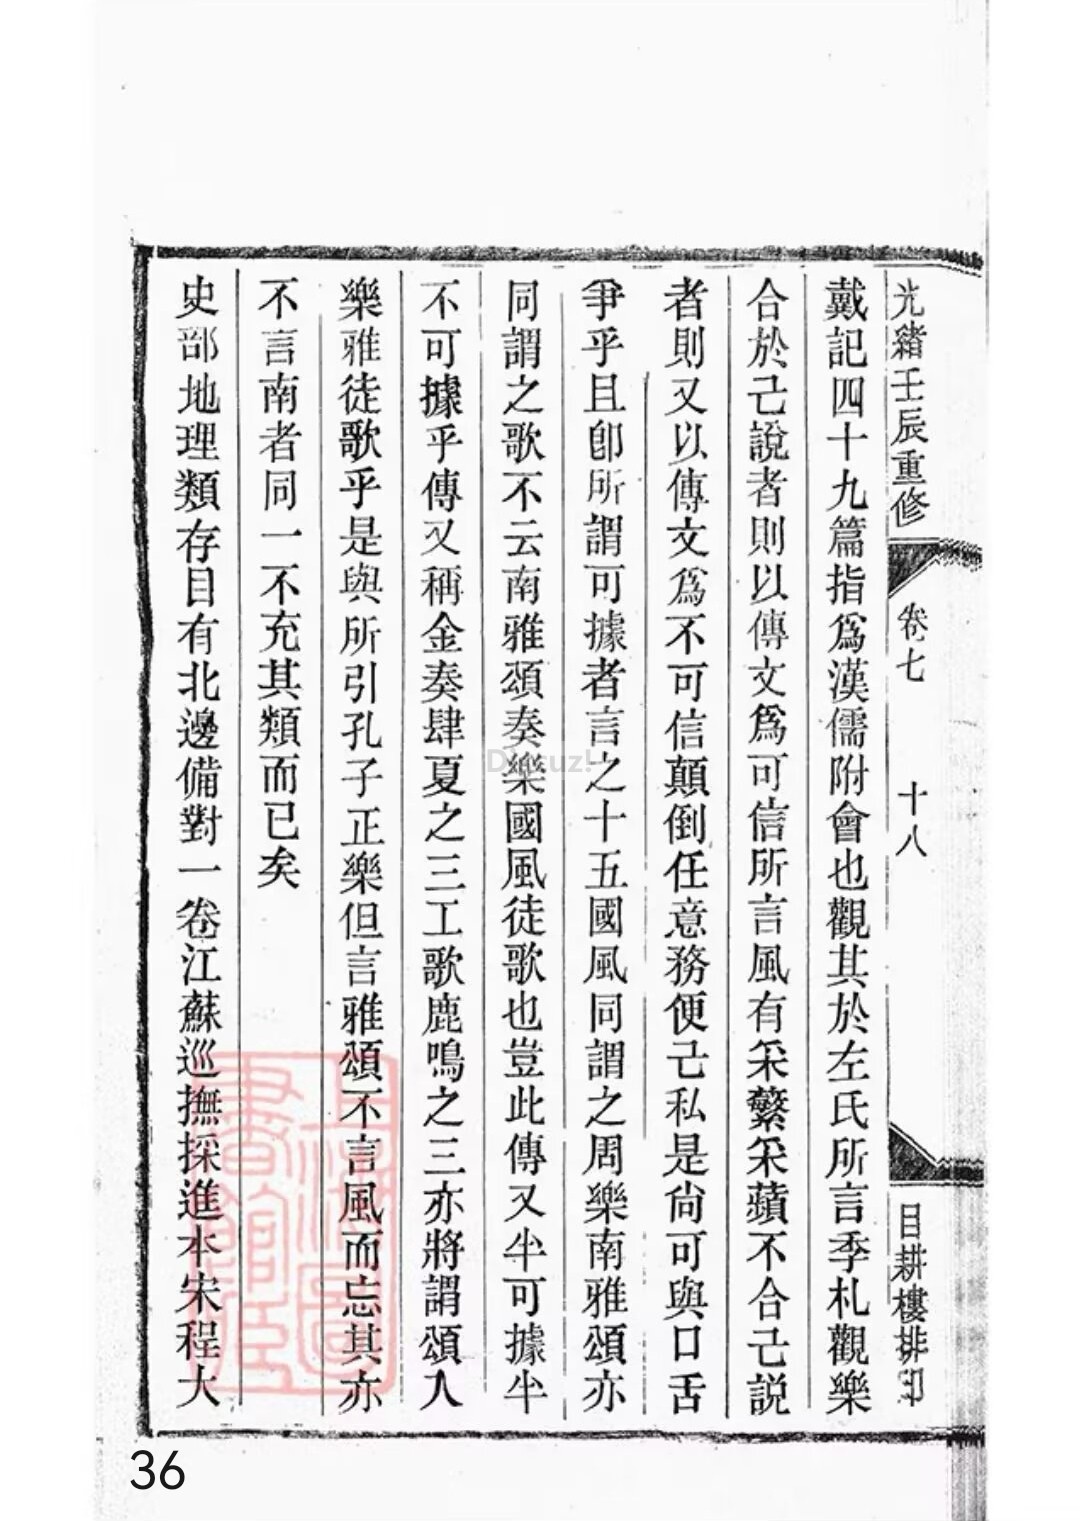 光緒壬辰重修
卷七
十八
目耕樓排印
戴記四十九篇指爲漢儒附會也觀其於左氏所言季札觀樂
合於己說者則以傳文爲可信所言風有采蘩采蘋不合己說
者則又以傳文爲不可信顛倒任意務便己私是尙可與口舌
爭乎且卽所謂可據者言之十五國風同謂之周樂南雅頌亦
同謂之歌不云南雅頌奏樂國風徒歌也豈此傳又半可據半
不可據乎傳又稱金奏肆夏之三工歌鹿鳴之三亦將謂頌入
樂雅徒歌乎是與所引孔子正樂但言雅頌不言風而忘其亦
不言南者同一不充其類而已矣
史部地理類存目有北邊備對一卷江蘇巡撫採進本宋程大
36